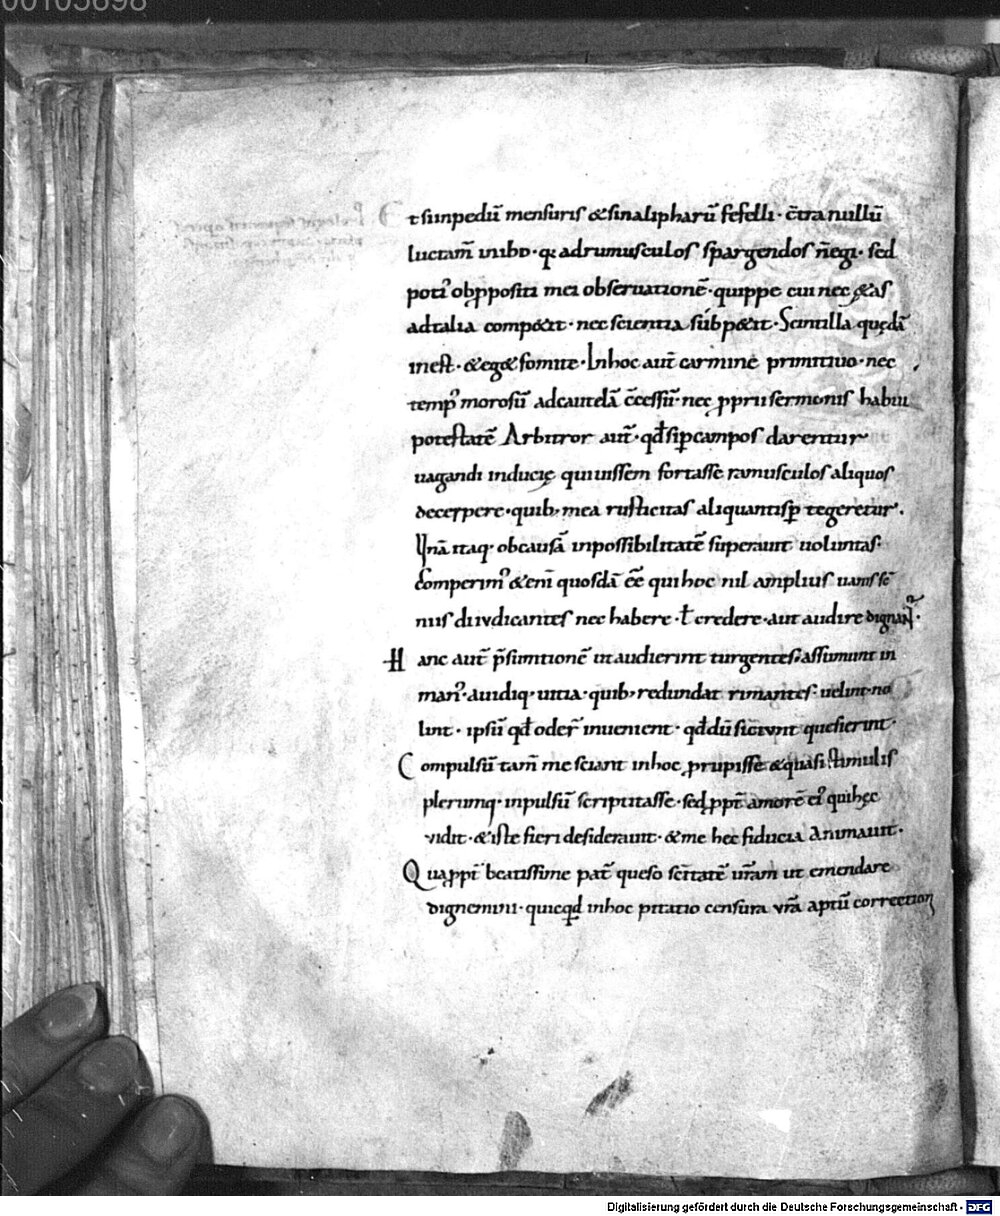 00103698
Et si in pedū mensuris &sinalipharū fefelli· c̄tra nullū
luctam̄ inibo· q; adrumusculos spargendos n̄egi· sed
poti᷒ obp̄positi mei obseruationē· quippe cui nec &as
adtalia comp&it· nec scientia sub p&it· Scintilla quędā
inest· &eg& fomite· Inhoc aut̄ carmine primitiuo· nec
temp᷒ morosū adcautelā c̄cessū· nec ꝓprii sermonis habui
potestatē Arbitror aut̄· qđ si ꝑ campos darentur
uagandi inducię quiuissem fortasse ramusculos aliquos
decerpere· quib; mea rusticitas aliquantisꝑ tegeretur.
Vnā itaq· obcausā inpossibilitatē superauit uoluntas·
Comperim᷒ &eni quosdā ēe qui hoc nil amplius uanis sē
niis diiudicantes nec habere· ł credere· aut audire dignant᷑·
Hanc aut̄ p̄sumtionē ut audierint turgentes· assumunt in
mani᷒· auidiq· uitia· quib; redundat rimantes· uelint no
lint· ipsū qđ oder̄ inuenient· qđ dū siciunt quesierint·
Compulsū tam̄ me sciant inhoc ꝓrupisse &quasi stimulis
plerumq· inpulsū scriptitasse· sed ꝓpt̄ amorē ei᷒ qui hęc
vidit· &iste fieri desiderauit· &me hec fiducia animauit·
Quaꝓpt̄ beatissime pat̄ queso sc̄itatē ur̄am ut emendare
dignemini· quicqđ inhoc pitatio censura vr̄a aptū correction
Digitalisierung gefördert durch die Deutsche Forschungsgemeinschaft - DFG